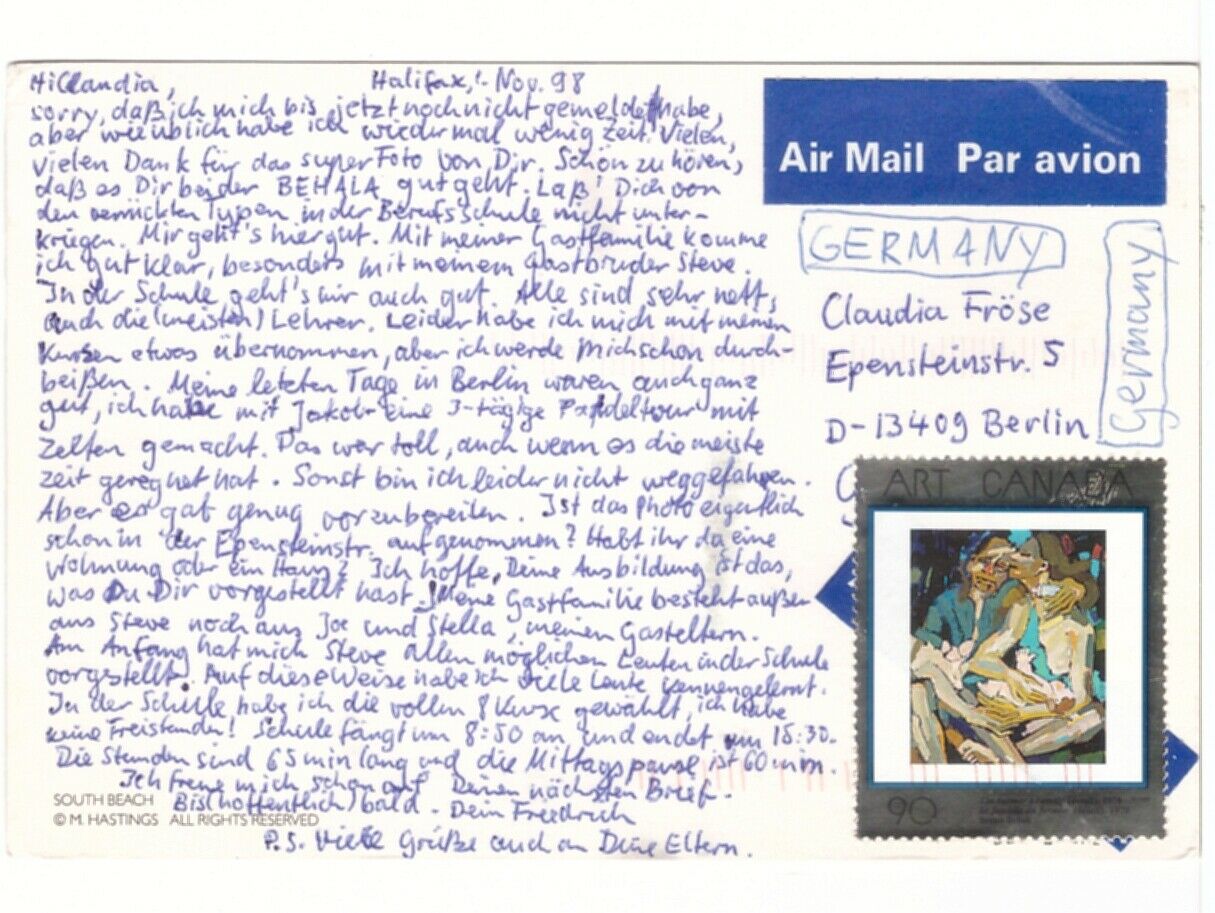 Hi Claudia, Halifax, 1. Nov. 98
sorry, daß ich mich bis jetzt noch nicht gemeldet habe,
aber wie üblich habe ich wieder mal wenig Zeit. Vielen,
vielen Dank für das super Foto von Dir. Schön zu hören,
daß es Dir bei der BEHALA gut geht. Laß' Dich von
den verrückten Typen in der Berufsschule nicht unter-
kriegen. Mir geht's hier gut. Mit meiner Gastfamilie komme
ich gut klar, besonders mit meinem Gastbruder Steve.
In der Schule geht's mir auch gut. Alle sind sehr nett,
auch die (meisten) Lehrer. Leider habe ich mich mit meinen
Kursen etwas übernommen, aber ich werde mich schon durch-
beißen. Meine letzten Tage in Berlin waren auch ganz
gut, ich habe mit Jakob eine 3-tägige Paddeltour mit
Zelten gemacht. Das war toll, auch wenn es die meiste
Zeit geregnet hat. Sonst bin ich leider nicht weggefahren.
Aber es gab genug vorzubereiten. Ist das Photo eigentlich
schon in der Epensteinstr. aufgenommen? Habt ihr da eine
Wohnung oder ein Haus? Ich hoffe, Deine Ausbildung ist das,
was Du Dir vorgestellt hast. Meine Gastfamilie besteht außer
aus Steve noch aus Joe und Stella, meinen Gasteltern.
Am Anfang hat mich Steve allen möglichen Leuten in der Schule
vorgestellt. Auf diese Weise habe ich viele Leute kennengelernt.
In der Schule habe ich die vollen 8 Kurse gewählt, ich habe
keine Freistunden! Schule fängt um 8:50 an und endet um 15:30.
Die Stunden sind 65 min lang und die Mittagspause ist 60 min.
Ich freue mich schon auf Deinen nächsten Brief.
Bis (hoffentlich) bald. Dein Friedrich
P.S. Viele Grüße auch an Deine Eltern.
SOUTH BEACH
© M. HASTINGS ALL RIGHTS RESERVED
Air Mail Par avion
GERMANY
Germany
Claudia Fröse
Epensteinstr. 5
D-13409 Berlin
ART CANADA
90